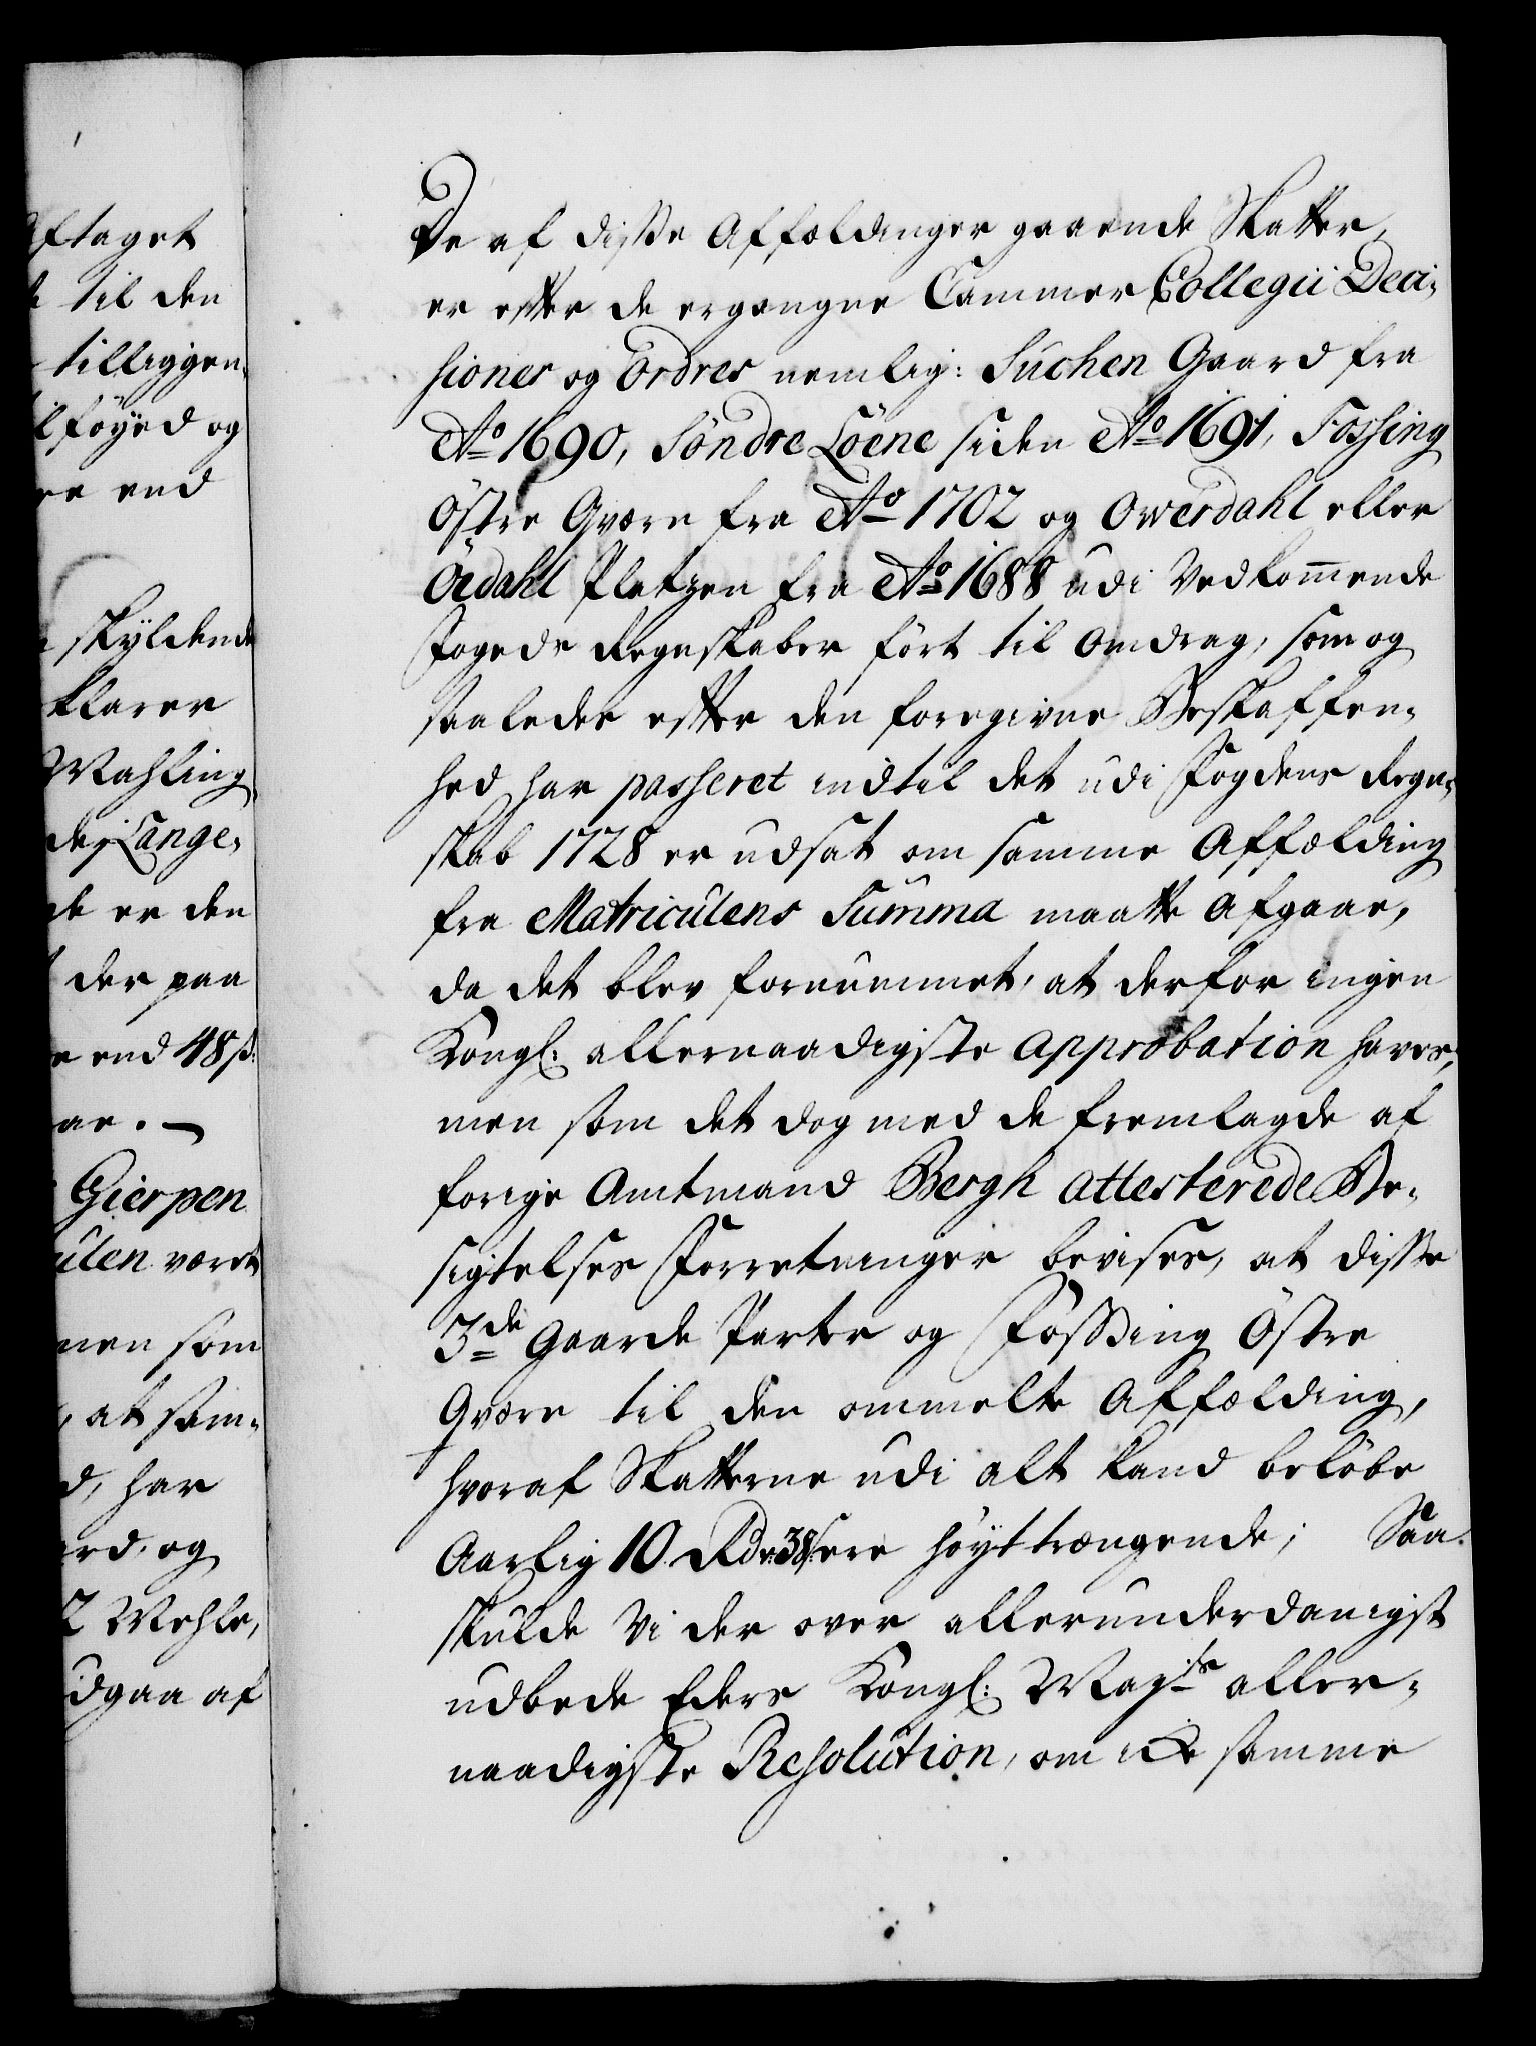 aftaget
til den
tilliggen
ilföyed og
re end
skÿldende
klarer
Mahling
des Lange-
de er den
der paa
e end 48 ß:
ar. —
Gierpen
ulen værde
men som
, at sam-
d, har
ard, og
2 Mehle,
udgaa af
De af disse Affældinger gaaende Skatter,
er efter de ergangne Cammer Collegii Deci-
sioner og Ordres nemlig: Suchen Gaard fra
Ao 1690, Söndre Löene siden Ao 1691, Fossing
Östre Qværn fra Ao 1702 og Owerdahl eller
Oedahl Pladzen fra Ao 1688 udi Vedkommende
Fogeds Regnskaber fört til Omdrag, som og
saaledes efter den foregivne Beskaffen-
hed har passeret indtil det udi Fogdens Regn-
skab 1728 er udsat om samme Affælding
fra Matriculens Summa maatte Afgaae,
da det blev fornummet, at derfor ingen
Kongl: allernaadigste Approbation haves,
men som det dog med de fremlagde af
forige Amtmand Bergh attesterede Be-
sigtelses Forretninger bevises, at disse
3de Gaarde Parter og Fossing Östre
Qværn til den ommelte Affælding,
hvoraf Skatterne udi alt kand belöbe
Aarlig 10 Rdr 38 ß ere höyttrængende; Saa
skulde Vi der over allerunderdanigst
udbede Eders Kongl: Mayts aller-
naadigste Resolution, om icke samme